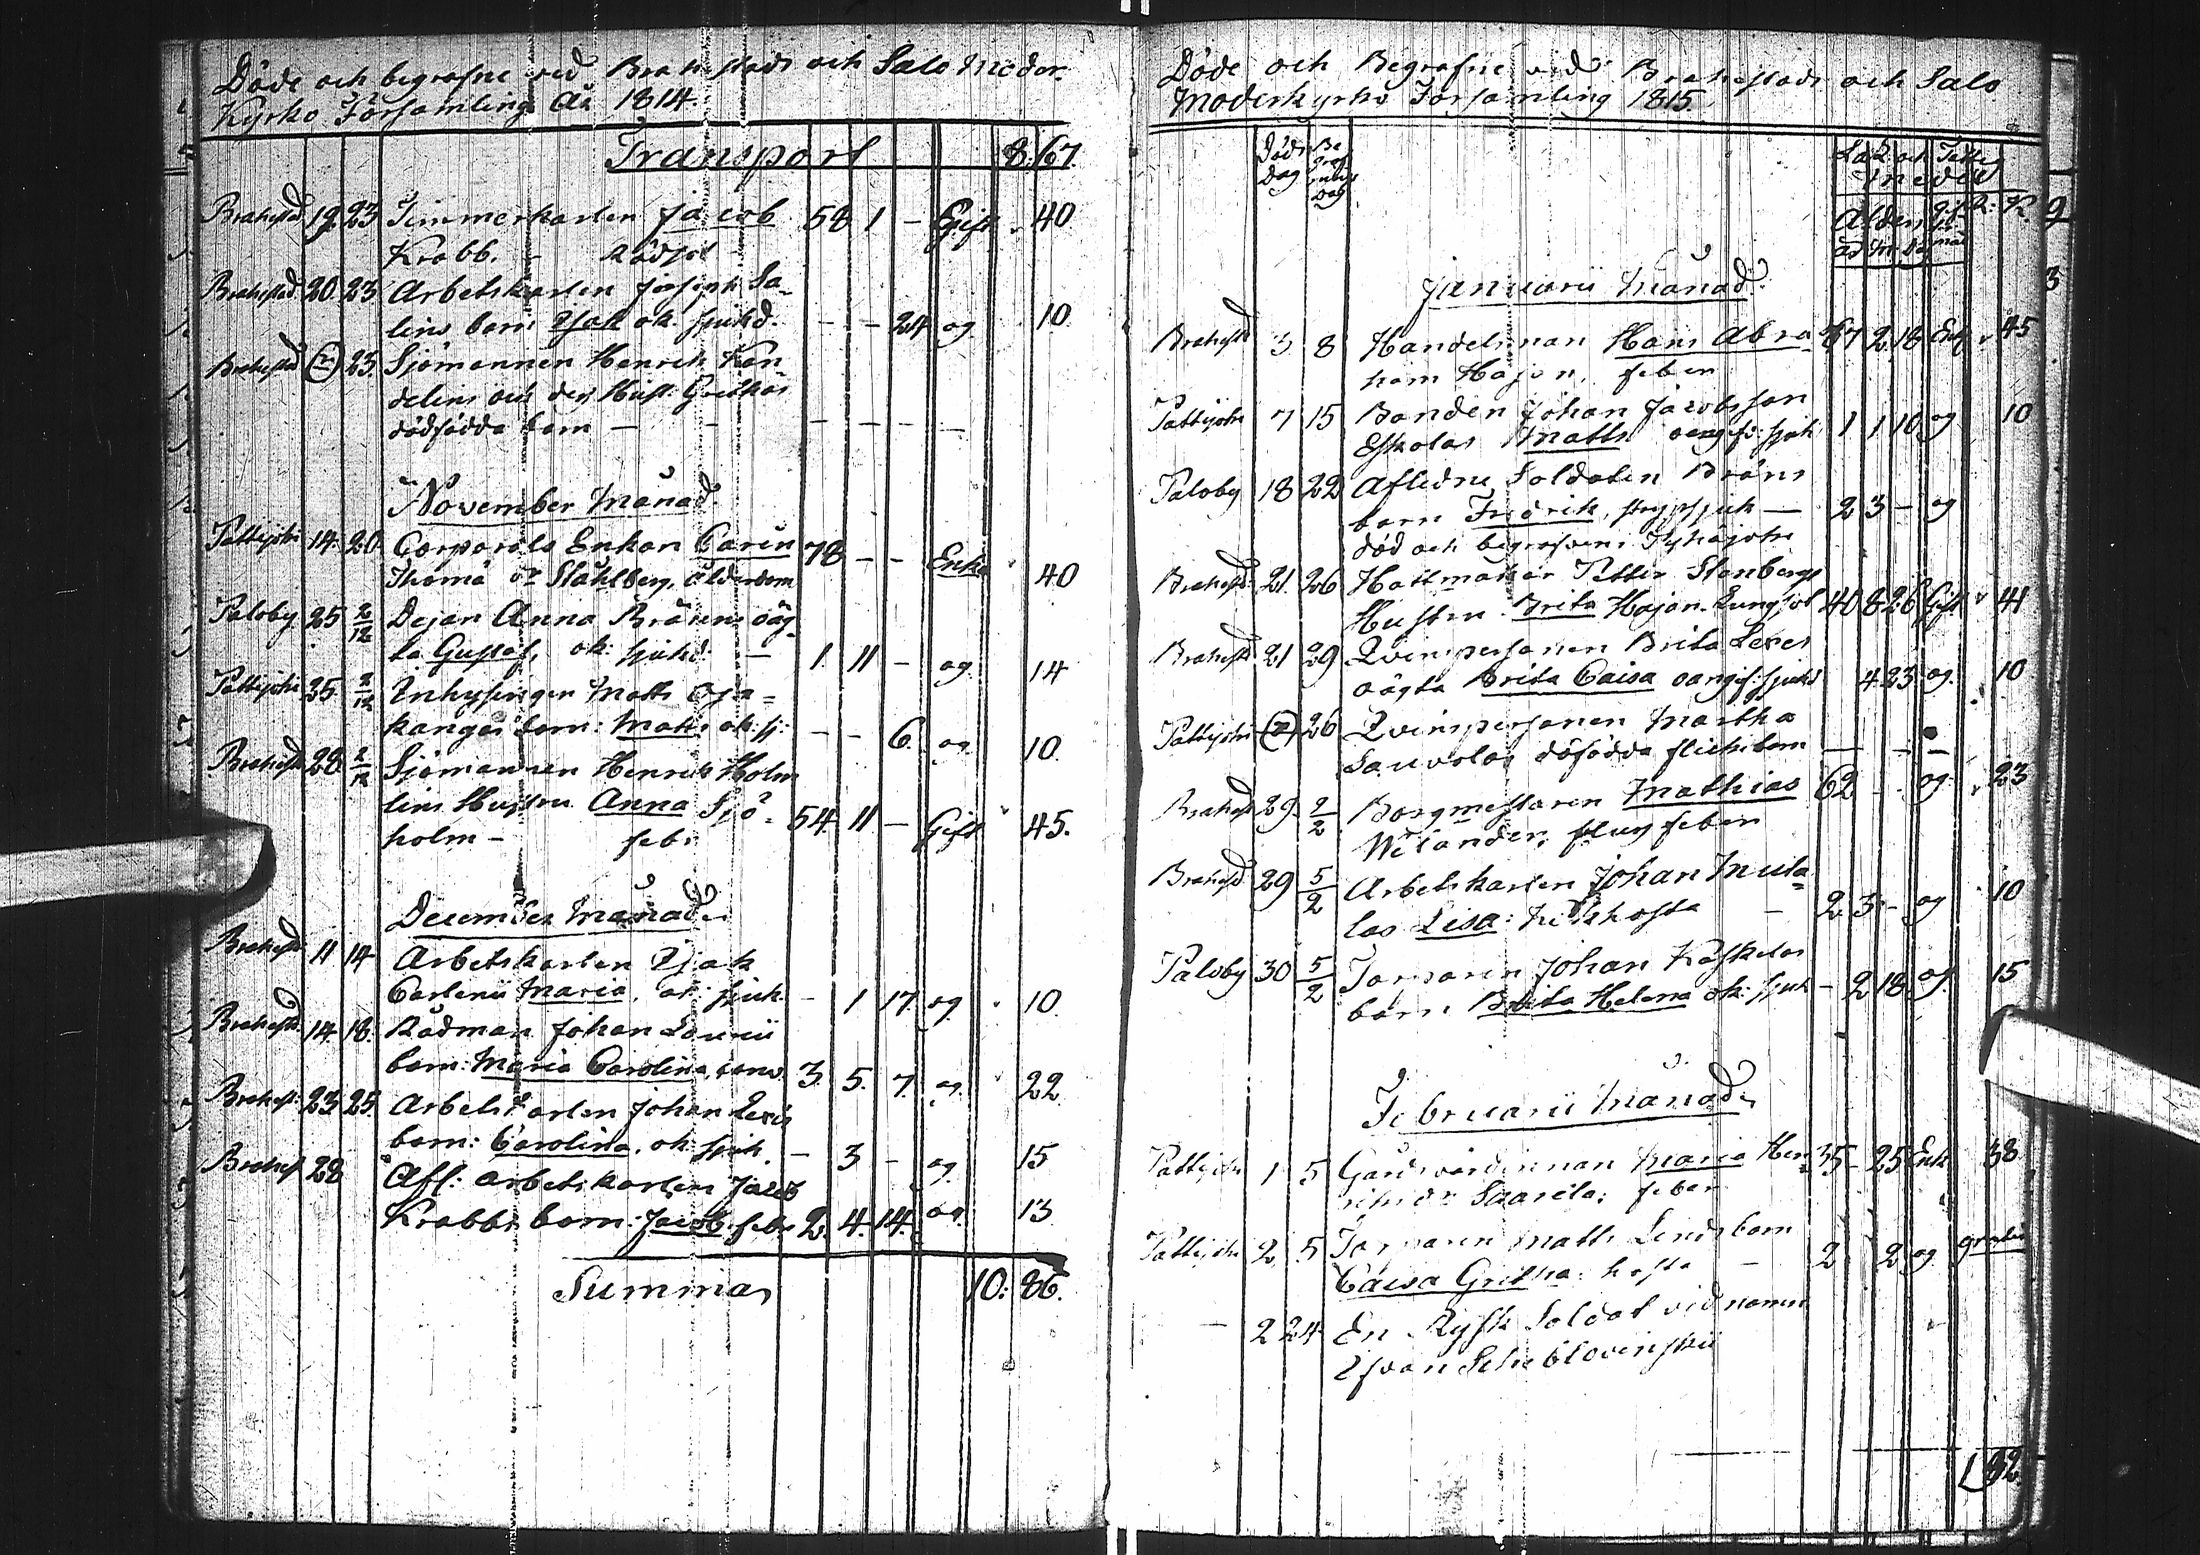 Döde och begrafne vid Brahestads och Salo Moder
Kyrko Församling År 1814.
Transport 8: 67.
Brahestad 19. 23 Timmerkarlen Jacob 58 1 - Gift 40
Krabb. - Rödsot
Brahestad 20 23 Arbetskarlen Joseph Sa-
lins barn Isak ok. sjukd. - - 24 og 10.
Brahestad 23 Sjömannen Henrik Kan-
delins och dess Hust. Grethas
dödfödda barn - - - - - -
November Månad.
Pattijoki 14. 20. Corporals Enkan Carin 78 - - Enka 40
Thomæ dr Ståhlberg, ålderdom
Paloby 25 2/12 Dejan Anna Bråuns oäg-
ta Gustaf, ok: sjukd. - 1 11 - og 14
Pattijoki 25. 2/12 Inhysingen Matts Oja-
kangas barn: Matts ok: sj: - - 6. og 10.
Brahestad 28 2/12 Sjömannen Henrik Holm
lins Hustru Anna Sjö- 54 11 - Gift 45.
holm - feber
December Månad.
Brahestad 11 14 Arbetskarlen Isak
Carlenii Maria, ok: sjuk. - 1 17. og 10.
Brahestad 14. 18. Rådman Johan Sovelii
barn: Maria Carolina, 3. 5. 7. og 22.
Brahest: 23 25. Arbetskarlen Johan Lexis
barn: Carolina, ok: sjuk. - 3 - og 15
Brahest 28 Afl: arbetskarlen Jacob
Krabbs barn: Jacob feber 2. 4. 14. og 13
Summa 10: 86.
Döde och Begrafne vid Brahestads och Salo
Moderkyrko Församling 1815.
Döds Dag Be graf nings Dag
Ålder
år M. Dag
Januarii Månad.
Brahestad 3 8 Handelsman Hans Abra- 67 2 18 Enk 45
ham Hajon, feber
Pattijoki 7 15 Bonden Johan Jacobsson
Eskolas Matts oangif: sjuk 1 1 10 og 10
Paloby 18 22 Aflidne Soldaten Bråns
barn Fredrik, strypsjuk - 2 3 - og
död och begrafven i Pyhäjoki
Brahestad 21. 26 Hattmakar Petter Stenbergs
Hustru Brita Hajon. Lungsot 40 8 26 Gift 41
Brahestad 21 29 Qvinspersonen Brita Lexes
oägta Brita Caisa oangif: sjukd 4 23 og. 10
Pattijoki 26 Qvinspersonen Martha
Sauvolas döfödda flickebarn - - -
Brahest 29. 2/2 Borgmestaren Mathias 62 - - og. 23
Welander, flug feber
Brahest 29 5/2 Arbetskarlen Johan Mula-
las Lisa: kikhosta - 2 3 - og 10
Paloby 30 5/2 Torparen Johan Koskelas
barn Brita Helena ok: sjuk - 2 18 og. 15
Februarii Månad.
Pattijoki 1 5 Gårdvärdinnan Maria Hen- 35 - 25 Enk 38
riks dr Saarela; feber
Pattijoki 2 5 Torparen Matts Linds barn
Caisa Gretha: hosta - 2 2 og gratis
- 2 24 En Rysk Soldat vid namn
Ifvan